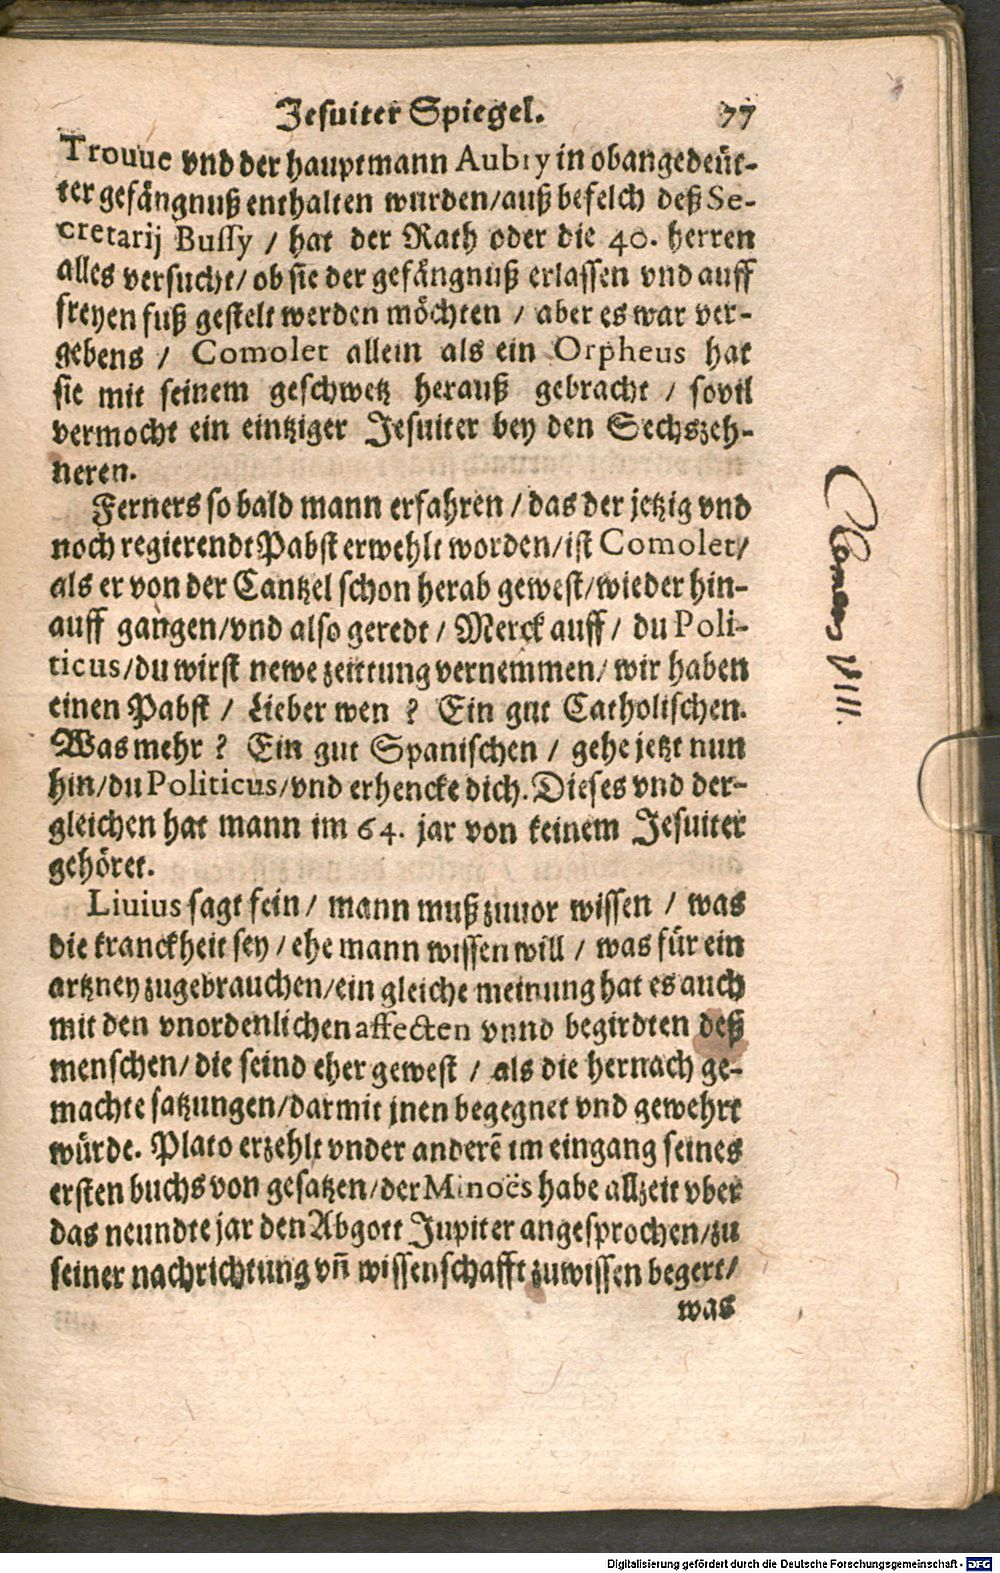 Jesuiter Spiegel. 77
Trouue vnd der hauptmann Aubry in obangedeüt-
ter gefängnuß enthalten wurden/auß befelch deß Se-
cretarij Bussy / hat der Rath oder die 40. herren
alles versucht/ ob sie der gefängnuß erlassen vnd auff
freyen fuß gestelt werden möchten / aber es war ver-
gebens / Comolet allein als ein Orpheus hat
sie mit seinem geschwetz herauß gebracht / sovil
vermocht ein eintziger Jesuiter bey den Sechszeh-
neren.
Ferners so bald mann erfahren / das der jetzig vnd
noch regierendt Pabst erwehlt worden/ist Comolet/
als er von der Cantzel schon herab gewest/wieder hin-
auff gangen/vnd also geredt / Merck auff / du Poli-
ticus/du wirst newe zeittung vernemmen/ wir haben
einen Pabst / Lieber wen ? Ein gut Catholischen.
Was mehr ? Ein gut Spanischen / gehe jetzt nun
hin/du Politicus/vnd erhencke dich. Dieses vnd der-
gleichen hat mann im 64. jar von keinem Jesuiter
gehöret.
Liuius sagt fein / mann muß zuuor wissen / was
die kranckheit sey / ehe mann wissen will / was für ein
artzney zugebrauchen/ein gleiche meinung hat es auch
mit den vnordenlichen affecten vnnd begirdten deß
menschen/ die seind eher gewest / als die hernach ge-
machte satzungen/darmit jnen begegnet vnd gewehrt
würde. Plato erzehlt vnder anderē im eingang seines
ersten buchs von gesatzen/der Minoës habe allzeit vber
das neundte jar den Abgott Jupiter angesprochen/zu
seiner nachrichtung vn̄ wissenschafft zuwissen begert/
was
Clemens VIII.
Digitalisierung gefördert durch die Deutsche Forschungsgemeinschaft - DFG